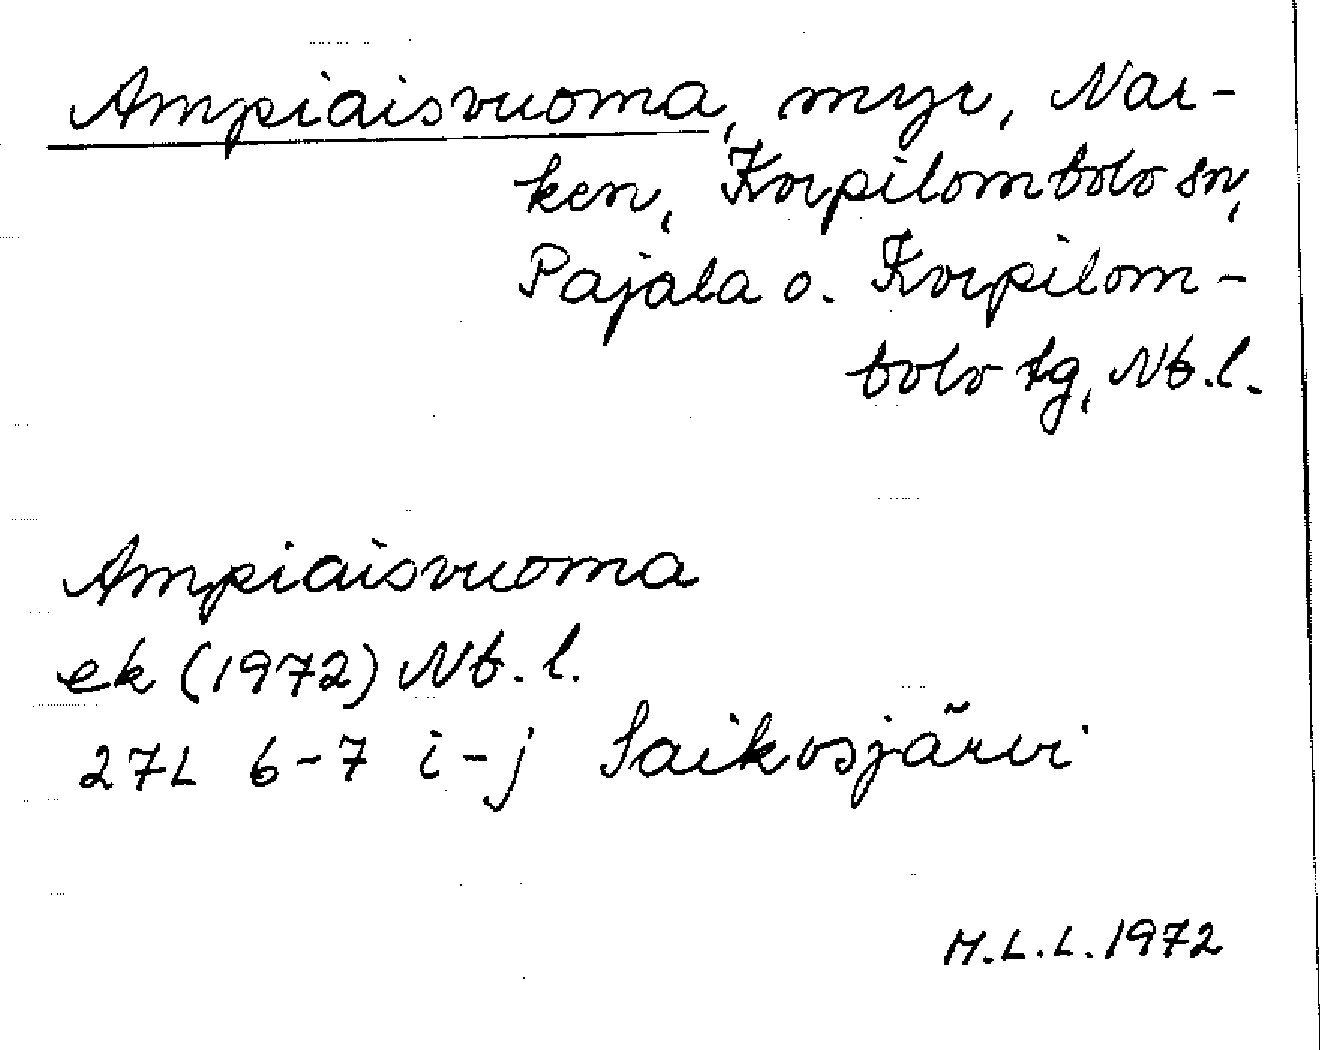 Ampiaisvuoma, myr, Nar-
ken, Korpilombolo sn,
Pajala o. Korpilom-
bolo tg, Nb.l.
Ampiaisvuoma
ek (1972) Nb. l.
27L 6-7 i-j Saikosjärvi
M.L.L. 1972